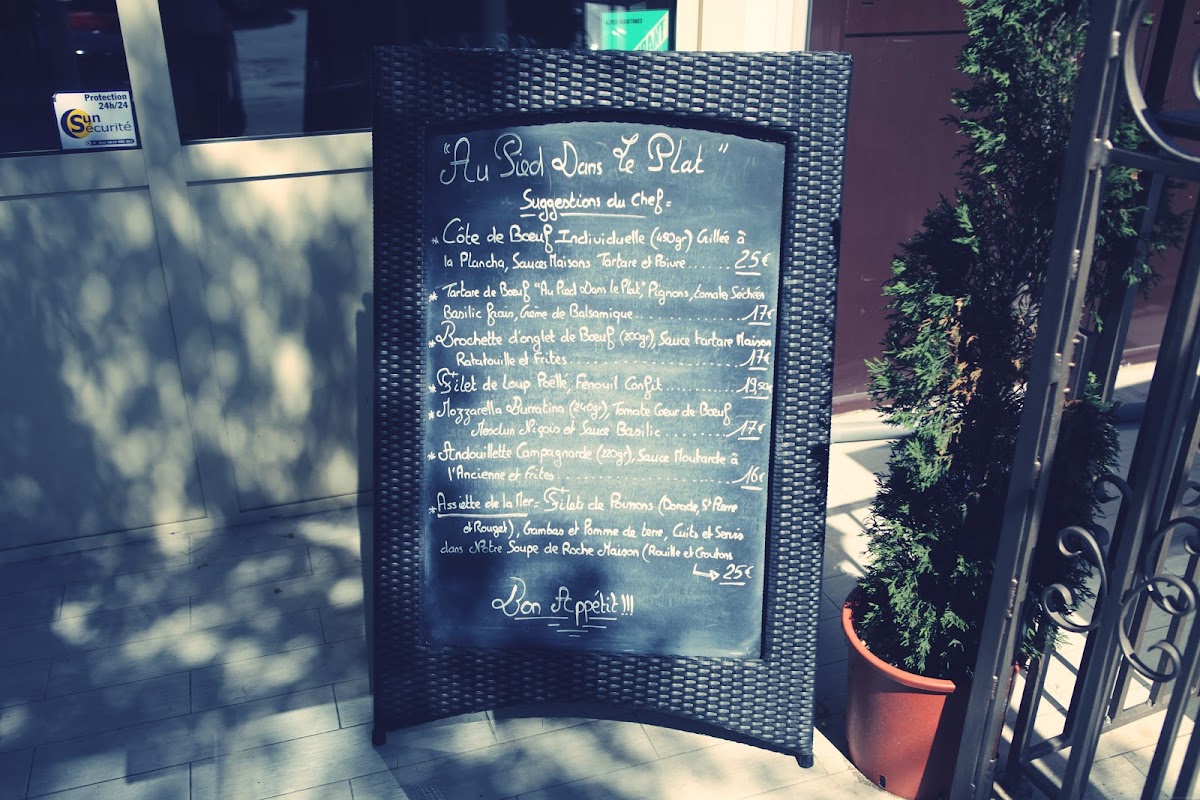 Protection
24h/24
Sun
Sécurité
"Au Pied Dans Le Plat"
Suggestions du Chef =
* Côte de Bœuf Individuelle (450gr) Grillée à
la Plancha, Sauces Maisons Tartare et Poivre...... 25€
* Tartare de Bœuf "Au Pied Dans le Plat", Pignons, tomate Séchées
Basilic frais, Crème de Balsamique............ 17€
* Brochette d'onglet de Bœuf (200gr), Sauce tartare Maison
Ratatouille et Frites.................. 17€
* Filet de Loup Poêlé, Fenouil Confit............ 19,50€
* Mozzarella Burratina (240gr), Tomate Cœur de Bœuf
Mesclun Niçois et Sauce Basilic......... 17€
* Andouillette Campagnarde (220gr), Sauce Moutarde à
l'Ancienne et Frites.................. 16€
* Assiette de la Mer = Filets de Poissons (Dorade, St Pierre
et Rouget), Gambas et Pomme de terre, Cuits et Servis
dans Notre Soupe de Roche Maison (Rouille et Croutons
25€
Bon Appétit !!!